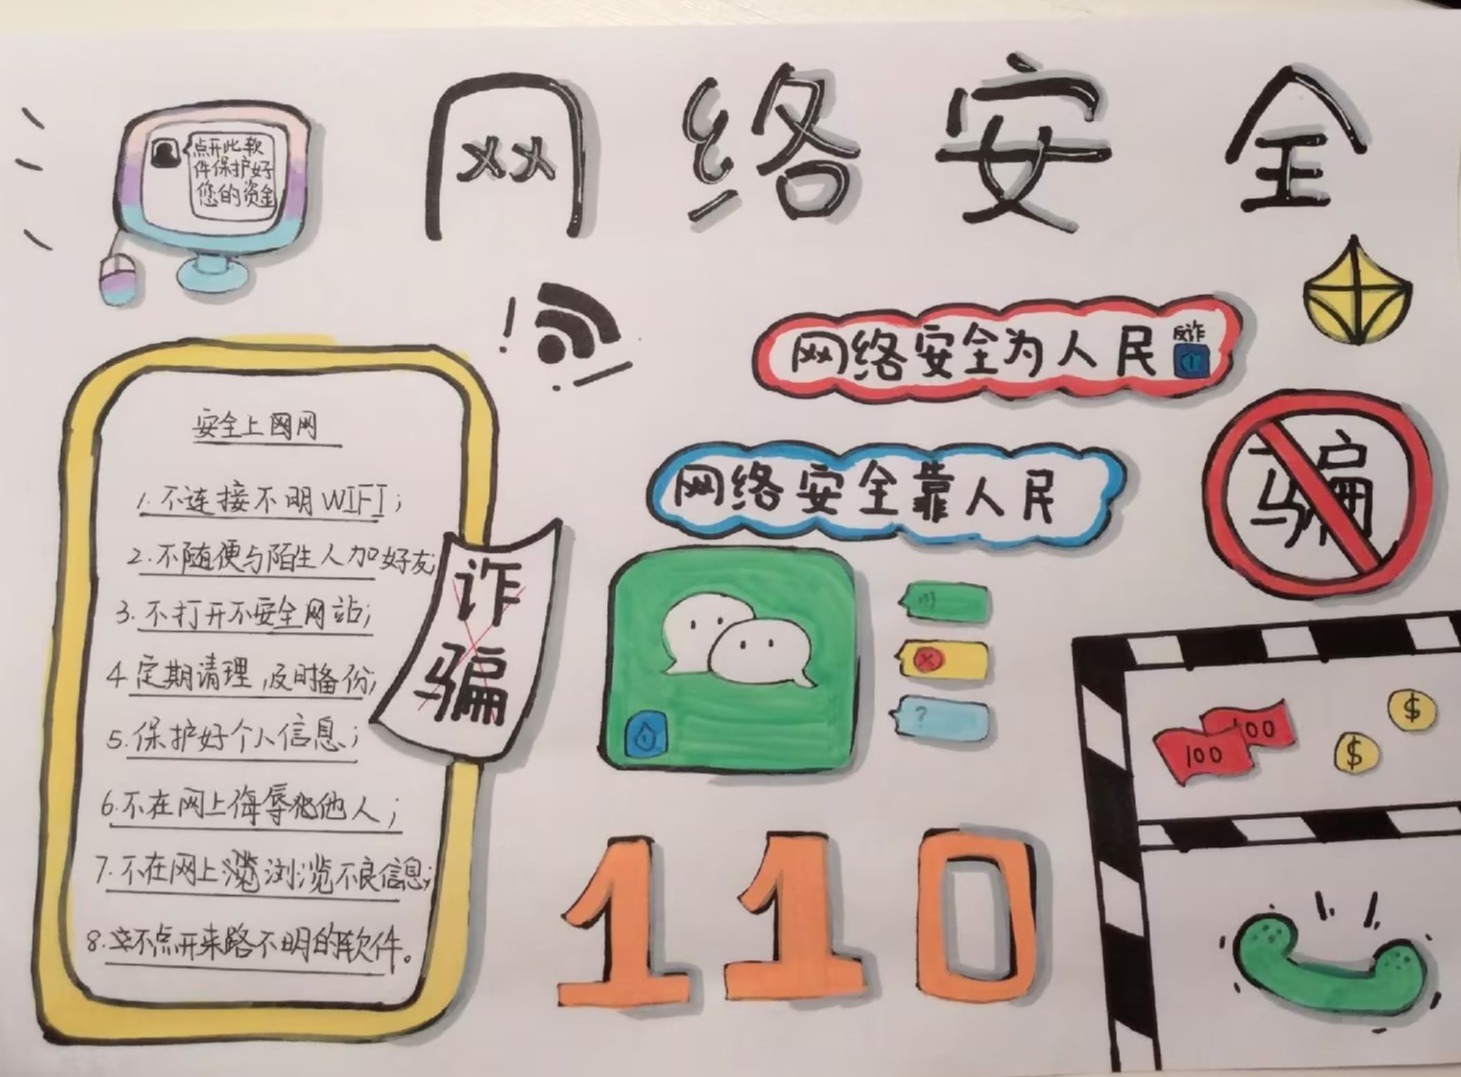 网络安全
点开此软
件保护好
您的资金
网络安全为人民
反诈
网络安全靠人民
骗
安全上网网
1.不连接不明WIFI;
2.不随便与陌生人加好友
3.不打开不安全网站;
4.定期清理,及时备份;
5.保护好个人信息;
6.不在网上侮辱他人;
7.不在网上浏览不良信息;
8.不点开来路不明的软件。
诈
骗
?
100
100
$
$
110